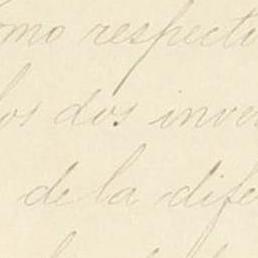 omo respecti
los dos inver
de la dife